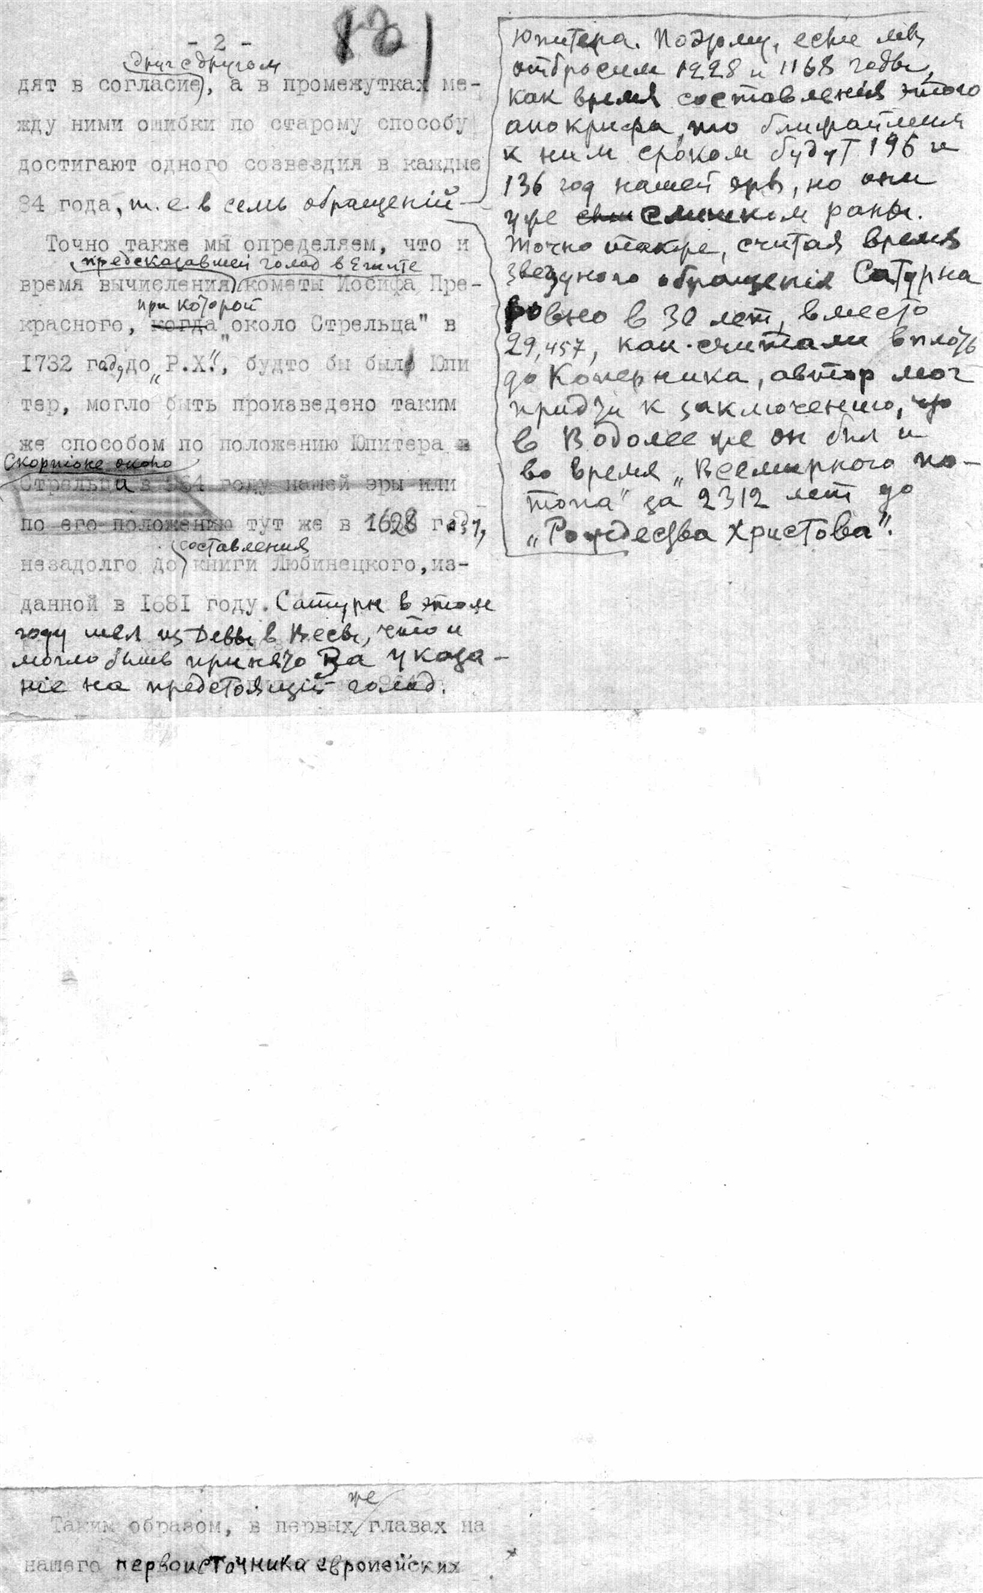 - 2 -
821
друг с другом
дят в согласие, а в промежутках ме-
жду ними ошибки по старому способу
достигают одного созвездия в каждые
84 года, т. е. в семь обращенiй
юпитера. Поэтому, если мы
отбросим 1228 и 1168 годы,
как время составленiя этого
апокрифа, то ближайшим
к ним сроком будут 196 и
136 год нашей эры, но они
уже слишком раны.
Точно также, считая время
звездного обращенiя Сатурна
ровно в 30 лет, вместо
29,457, как считали вплоть
до Коперника, автор мог
придти к заключению, что
в Водолее же он был и
во время „Всемирного по-
топа" за 2312 лет до
„Рождества Христова".
Точно также мы определяем, что и
предсказавшей голод в Египте
время вычисления кометы Иосифа Пре-
при которой
красного, когда „около Стрельца" в
1732 году до „Р.Х.", будто бы был Юпи
тер, могло быть произведено таким
же способом по положению Юпитера в
Скорпiоне около
Стрельца в году нашей эры или
по его положению тут же в 1628 году,
составления
незадолго до книги Любинецкого, из-
данной в 1681 году. Сатурн в этом
году шел из Девы в Весы, что и
могло быть принято за указа-
нiе на предстоящiй голод.
же
Таким образом, в первых главах на
нашего первоисточника европейских